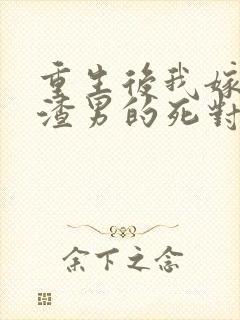 重生後我嫁
渣男的死對
余下之念